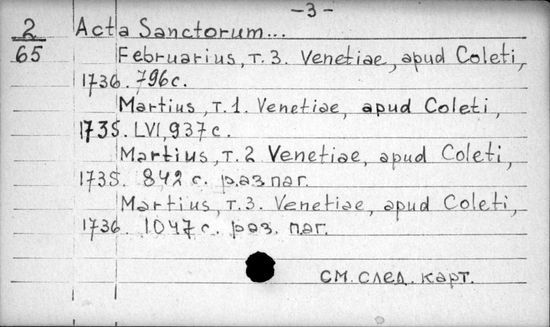 -3-
2 Acta Sanctorum...
65 Februarius, т. 3. Venetiae, apud Coleti,
1736. 796 с.
Martius, т. 1. Venetiae, apud Coleti,
1735. LVI, 937 с.
Martius, т. 2 Venetiae, apud Coleti,
1735. 842 с. раз паг.
Martius, т. 3. Venetiae, apud Coleti,
1736. 1047 с. раз. паг.
см. след. карт.